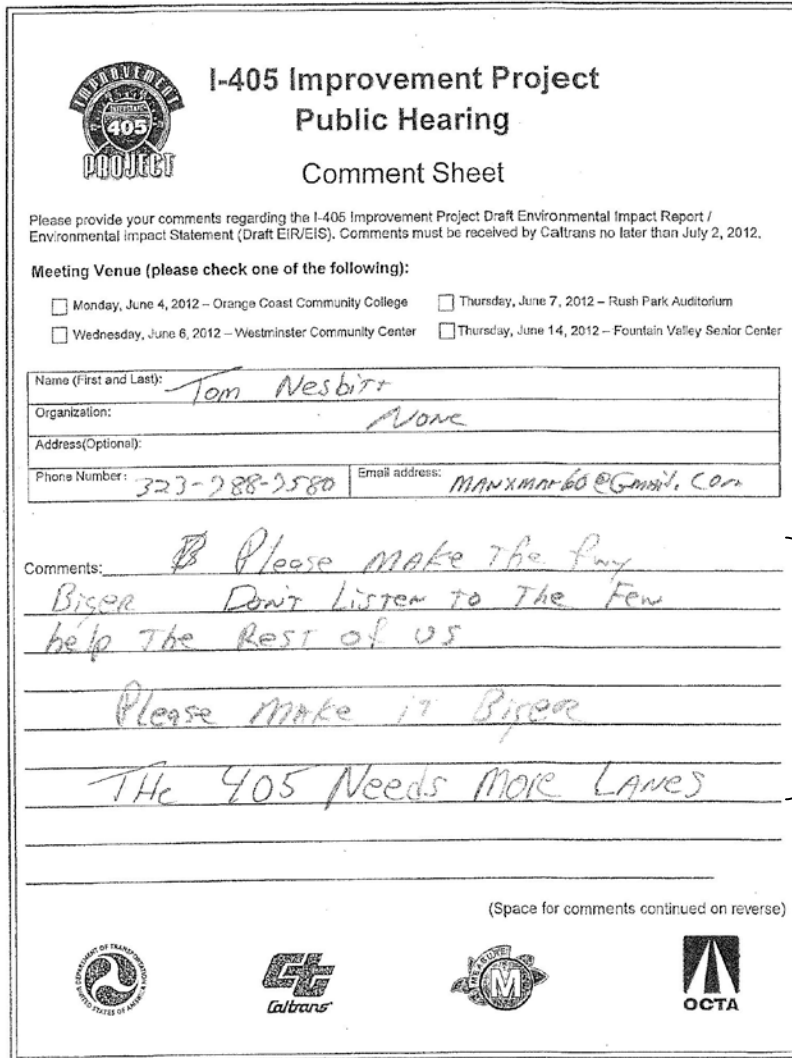 IMPROVEMENT
INTERSTATE
405
PROJECT
I-405 Improvement Project
Public Hearing
Comment Sheet
Please provide your comments regarding the I-405 Improvement Project Draft Environmental Impact Report /
Environmental Impact Statement (Draft EIR/EIS). Comments must be received by Caltrans no later than July 2, 2012.
Meeting Venue (please check one of the following):
Monday, June 4, 2012 – Orange Coast Community College
Thursday, June 7, 2012 – Rush Park Auditorium
Wednesday, June 6, 2012 – Westminster Community Center
Thursday, June 14, 2012 – Fountain Valley Senior Center
Name (First and Last): Tom Nesbitt
Organization: None
Address(Optional):
Phone Number: 323-788-7580 Email address: MANXMAN60@Gmail.Com
Comments: Please MAKE The fwy
Biger DonT LISTEN TO The Few
help The REST of US
Please MAKE iT Biger
THe 405 Needs More LANES
(Space for comments continued on reverse)
DEPARTMENT OF TRANSPORTATION
UNITED STATES OF AMERICA
Caltrans
MEASURE
M
OCTA